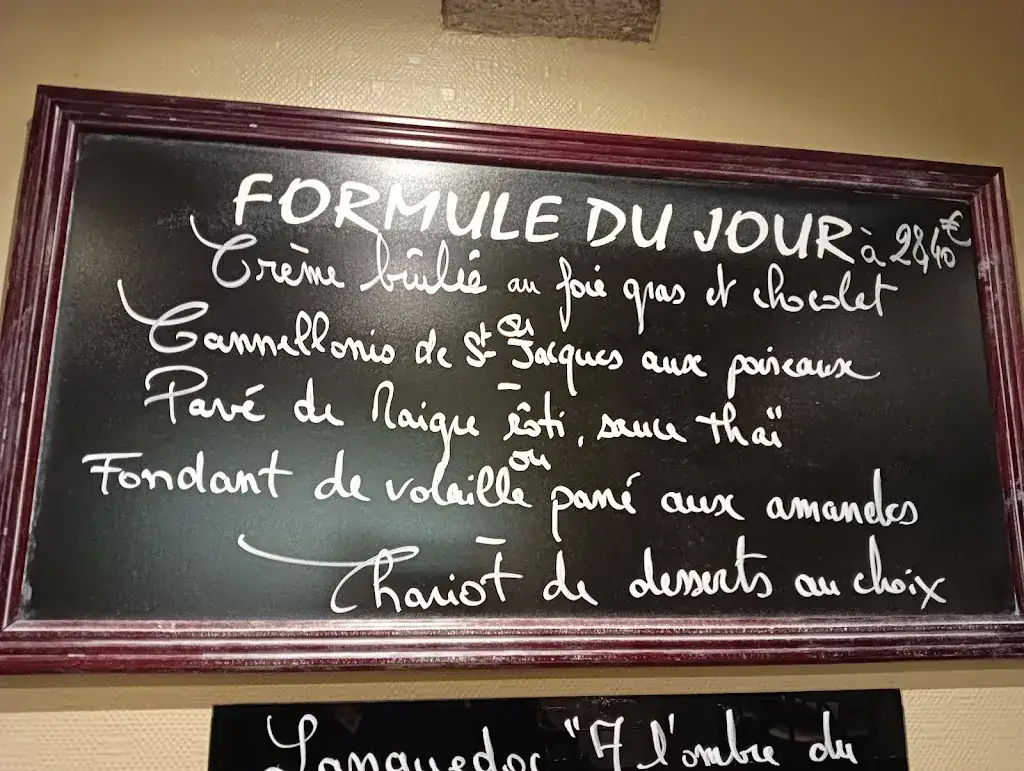 FORMULE DU JOUR à 28,40€
Crème brûlée au foie gras et chocolat
ou
Cannellonis de St Jacques aux poireaux
-
Pavé de Maigre rôti, sauce thaï
ou
Fondant de volaille pané aux amandes
-
Chariot de desserts au choix
Languedoc "A l'ombre du